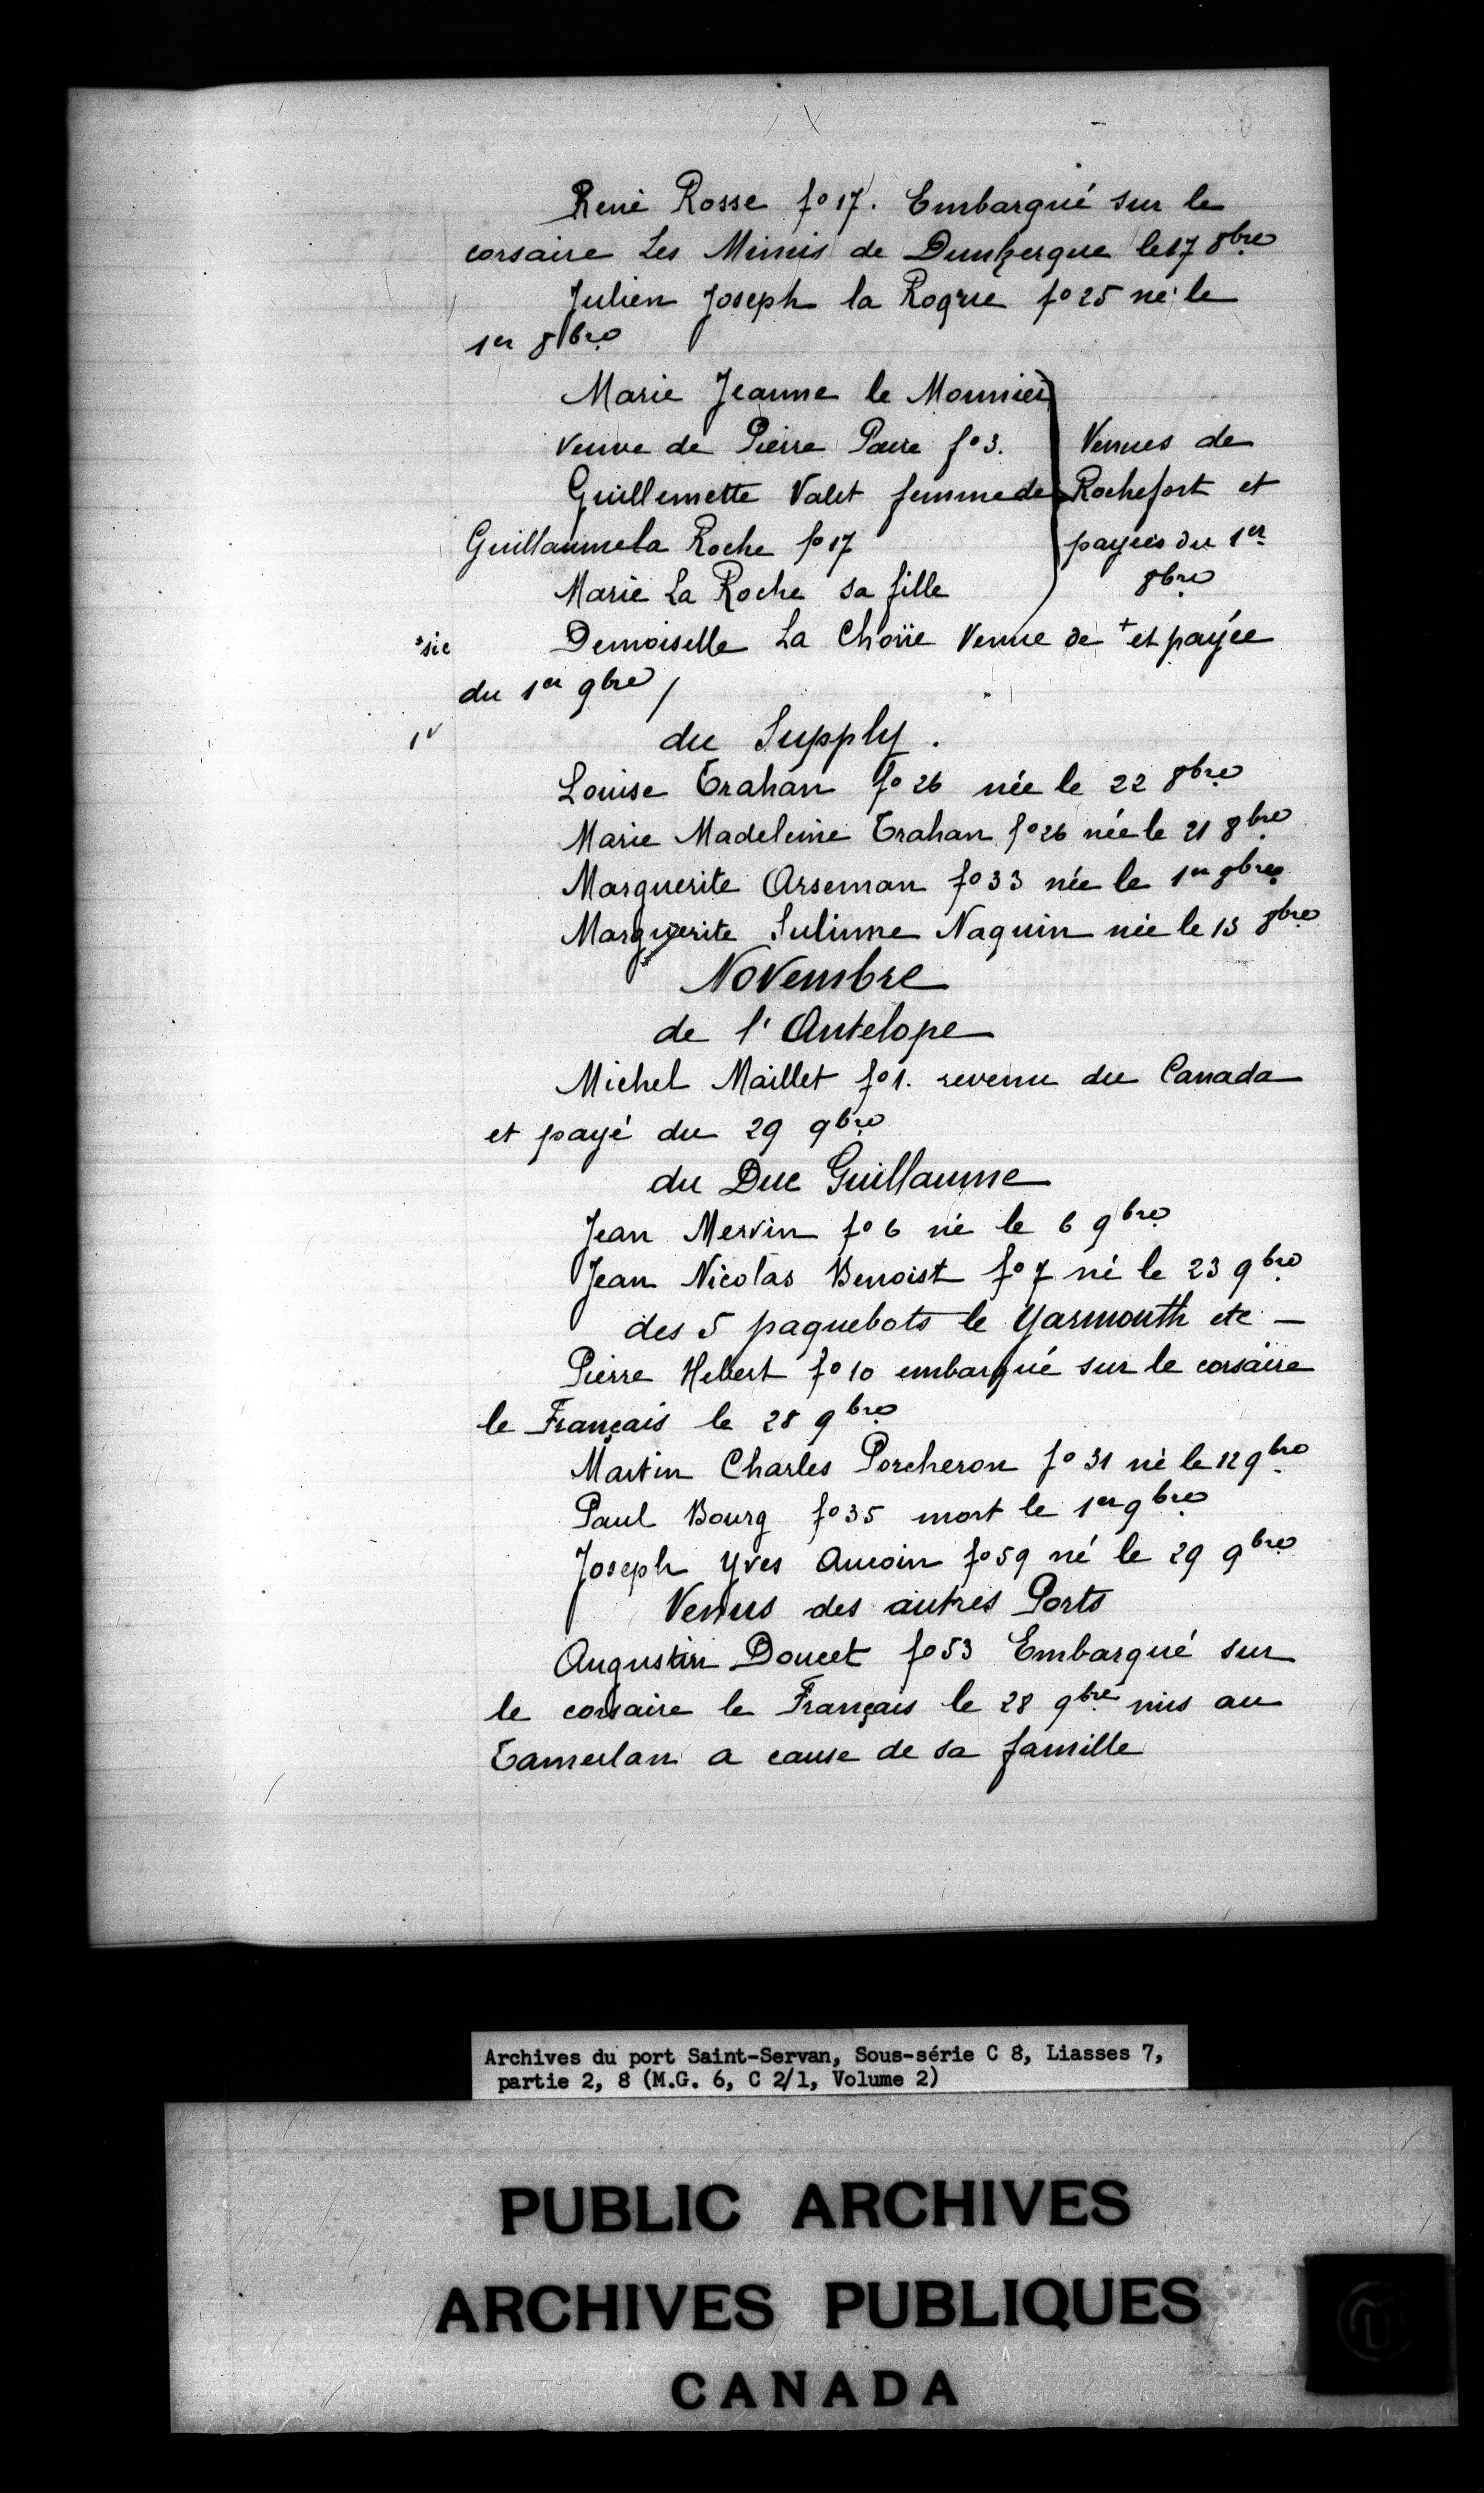 René Rosse fo 17. Embarqué sur le
corsaire Les Mimis de Dunkerque le 17 8bre
Julien Joseph la Rogue fo 25 né le
1er 8bre
Marie Jeanne le Monnier
veuve de Pierre Paire fo 3.
Guillemette Valet femme de
Guillaume la Roche fo 17
Marie La Roche sa fille
Venues de
Rochefort et
payées du 1er
8bre
*sic Demoiselle La Choüe Venue de + et payée
du 1er 9bre /
du Supply.
Louise Trahan fo 26 née le 22 8bre
Marie Madeleine Trahan fo 26 née le 21 8bre
Marguerite Arseman fo 33 née le 1er 8bre
Marguerite Julienne Naquin née le 13 8bre
Novembre
de l'Antelope
Michel Maillet fo 1. revenu du Canada
et payé du 29 9bre
du Duc Guillaume
Jean Mervin fo 6 né le 6 9bre
Jean Nicolas Benoist fo 7 né le 23 9bre
des 5 paquebots le Yarmouth etc –
Pierre Hebert fo 10 embarqué sur le corsaire
le Français le 28 9bre
Martin Charles Porcheron fo 31 né le 12 9bre
Paul Bourg fo 35 mort le 1er 9bre
Joseph Yves Aucoin fo 59 né le 29 9bre
Venus des autres Ports
Augustin Doucet fo 53 Embarqué sur
le corsaire le Français le 28 9bre mis au
Tamerlan a cause de sa famille
Archives du port Saint-Servan, Sous-série C 8, Liasses 7,
partie 2, 8 (M.G. 6, C 2/1, Volume 2)
PUBLIC ARCHIVES
ARCHIVES PUBLIQUES
CANADA